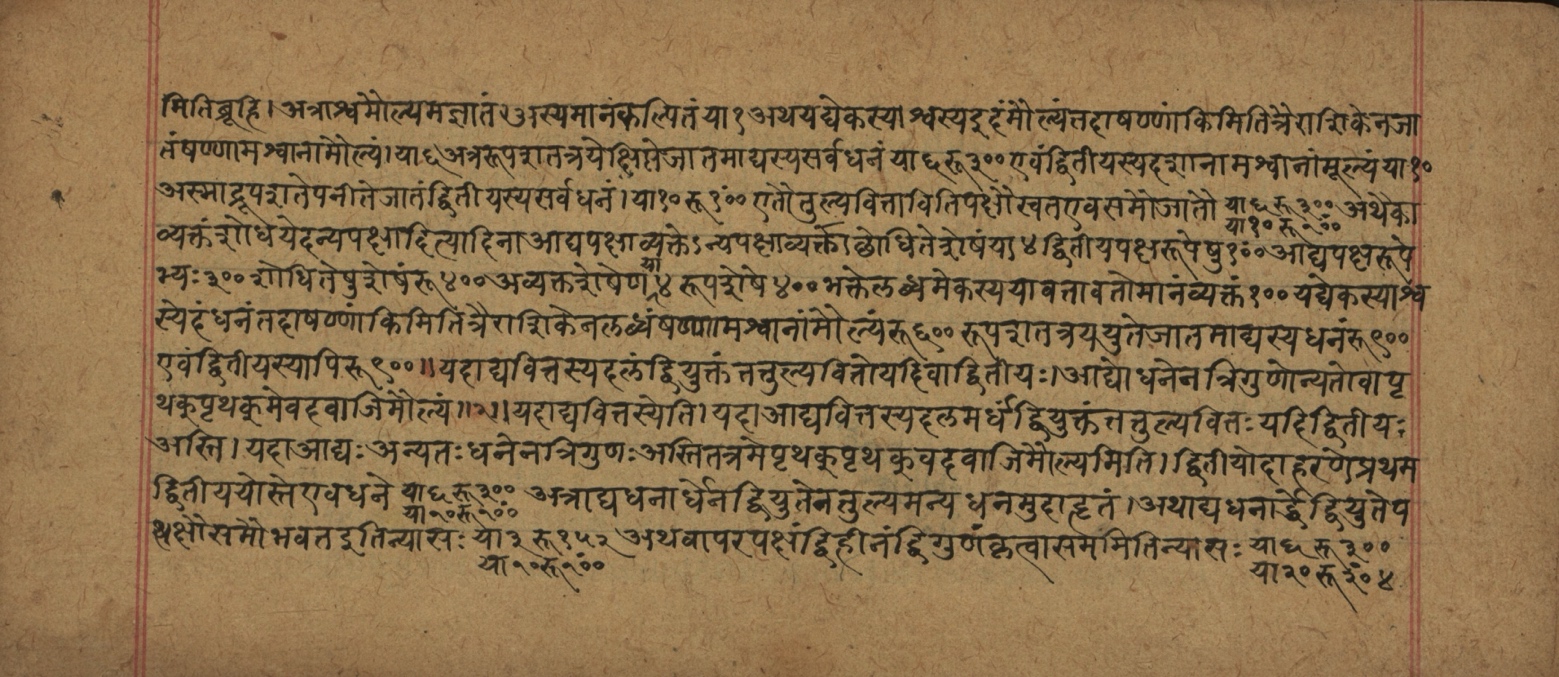 मितिब्रूहि। अत्राश्वमौल्यमज्ञातं। अस्यमानंकल्पितंया१ अथयद्येकस्याश्वस्यइदंमौल्यंतदाषण्णांकिमितित्रैराशिकेनजा
तंषण्णामश्वानांमौल्यं। या६ अत्ररूपशतत्रयेक्षिप्तेजातमाद्यस्यसर्वधनं या६रू३०० एवंद्वितीयस्यदशानामश्वानांमूल्यं या१०
अस्माद्रूपशतेपनीतेजातंद्वितीयस्यसर्वधनं। या१० रू१ं०० एतौतुल्यवित्तावितिपक्षौस्वतएवसमौजातौ या६रू३०० अथैका
या१०रू१ं००
व्यक्तंशोधयेदन्यपक्षादित्यादिनाआद्यपक्षाव्यक्तेऽन्यपक्षाव्यक्ताच्छोधितेशेषंया४ द्वितीयपक्षरूपेषु१ं०० आद्यपक्षरूपे
भ्यः३०० शोधितेषुशेषंरू४०० अव्यक्तशेषेण या४ रूपशेषे४०० भक्तेलब्धमेकस्ययावत्तावतोमानंव्यक्तं१०० यद्येकस्याश्व
स्येदंधनंतदाषण्णांकिमितित्रैराशिकेनलब्धंषण्णामश्वानांमौल्यंरू६०० रूपशतत्रययुतेजातमाद्यस्यधनंरू९००
एवंद्वितीयस्यापिरू९००॥ यदाद्यवित्तस्यदलंद्वियुक्तंतत्तुल्यवित्तोयदिवाद्वितीयः। आद्योधनेनत्रिगुणोन्यतोवापृ
थक्पृथक्मेवदवाजिमौल्यं॥२॥ यदाद्यवित्तस्येति। यदाआद्यवित्तस्यदलमर्धंद्वियुक्तंतत्तुल्यवित्तः यदिद्वितीयः
अस्ति। यदाआद्यः अन्यतः धनेनत्रिगुणः अस्तितत्रमेपृथक्पृथक्वदवाजिमौल्यमिति। द्वितीयोदाहरणेप्रथम
द्वितीययोस्तेएवधने या६रू३०० अत्राद्यधनार्धेनद्वियुतेनतुल्यमन्यधनमुदाहृतं। अथाद्यधनार्द्धेद्वियुतेप
या१०रू१ं००
श्चक्षौसमौभवतइतिन्यासः या३ रू१५२ अथवापरपक्षंद्विहीनंद्विगुणंकृत्वासममितिन्यासः या६रू३००
या१०रू१ं०० या२०रू२ं०४